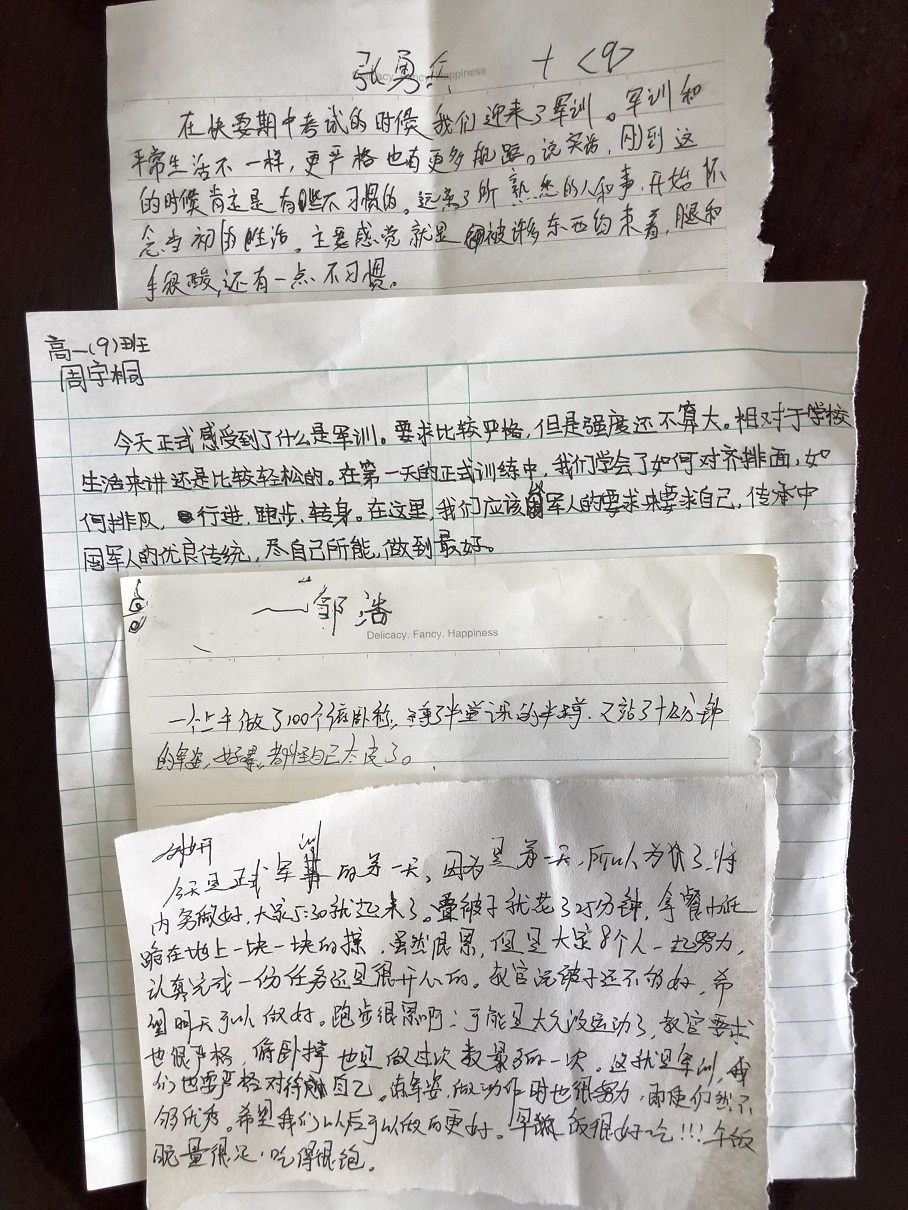 张勇兵 十〈9〉
Delicacy. Fancy. Happiness
在快要期中考试的时候我们迎来了军训。军训和
平常生活不一样，更严格也有更多。说实话，刚到这
的时候肯定是有些不习惯的。远离了所熟悉的人和事，开始怀
念当初的生活。主要感觉就是被许多东西约束着，腿和
手很酸，还有一点不习惯。
高一(9)班
周宇桐
今天正式感受到了什么是军训。要求比较严格，但是强度还不算大。相对于学校
生活来讲还是比较轻松的。在第一天的正式训练中，我们学会了如何对齐排面，如
何排队，行进，跑步，转身。在这里，我们应该以军人的要求来要求自己，传承中
国军人的优良传统，尽自己所能，做到最好。
邹浩
Delicacy. Fancy. Happiness
一个上午做了100个俯卧称，撑了半堂课的半蹲，又站了十几分钟
的军姿，好累，都怪自己太皮了。
今天是正式军训的第一天，因为是第一天，所以为了将
内务做好，大家5:30就起来了。叠被子就花了25分钟，拿餐巾纸
跪在地上一块一块的擦，虽然很累，但是大家8个人一起努力，
认真完成一份任务还是很开心的。教官说被子还不够好，希
望明天可以做好。跑步很累啊：可能是太久没运动了，教官要求
也很严格，俯卧撑也是做过次数最多的一次。这就是军训，我
们也要严格对待自己。练军姿，做动作时也很努力，即使仍然不
够优秀。希望我们以后可以做的更好。早饭很好吃!!!午饭
量很足，吃得很饱。